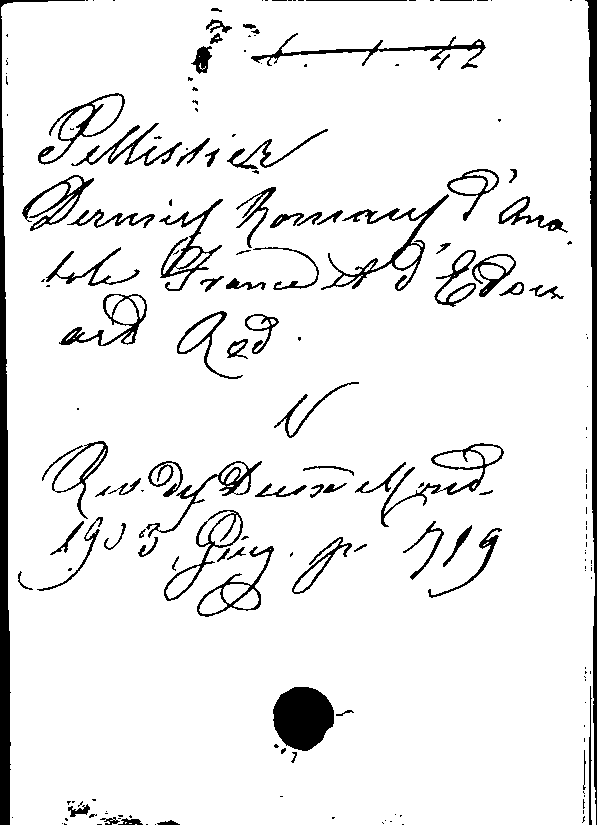 6. 1. 42
Pellissier
Derniers Romans d'Ana
tole France et d'Édou
ard Rod.
V
Rev. des Deux Mond.
1903 Giug. p. 719